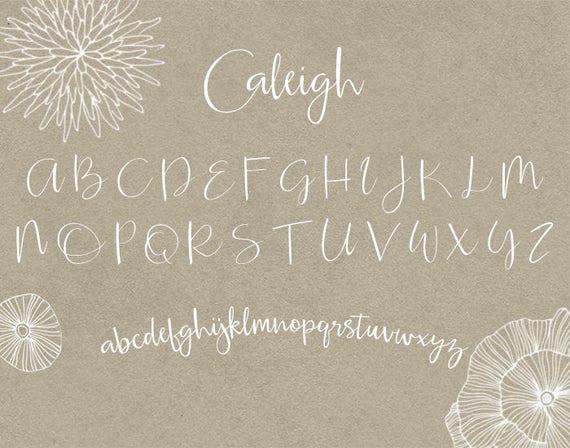 Caleigh
A B C D E F G H I J K L M
N O P Q R S T U V W X Y Z
abcdefghijklmnopqrstuvwxyz